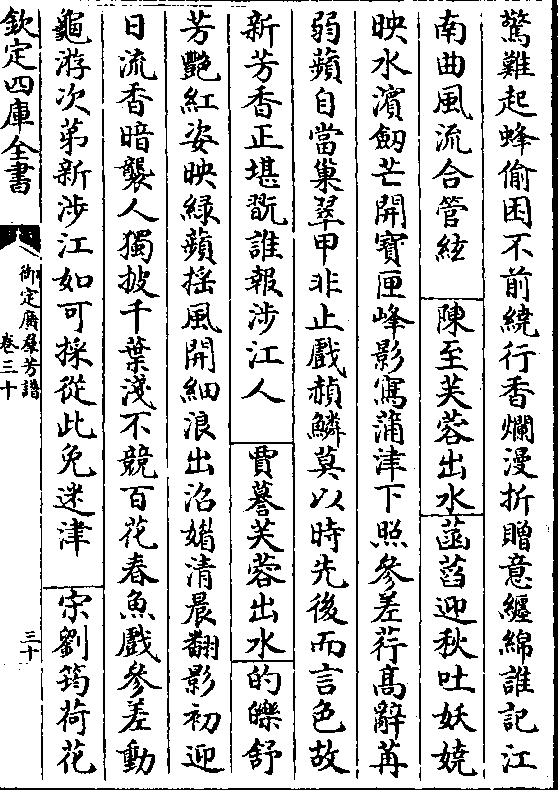 驚難起蜂偷困不前繞行香爛漫折贈意纏綿誰記江
南曲風流合管絃　陳至芙蓉出水菡萏迎秋吐妖嬈
映水濱劒芒開寶匣峰影寫蒲津下照參差荇高辭苒
弱蘋自當巢翠甲非止戲赬鱗莫以時先後而言色故
新芳香正堪翫誰報涉江人　賈謩芙蓉出水的皪舒
芳艷紅姿映緑蘋搖風開細浪出沼媚清晨翻影初迎
日流香暗襲人獨披千葉淺不競百花春魚戲參差動
龜游次第新涉江如可採從此免迷津　宋劉筠荷花
欽定四庫全書
御定廣羣芳譜
卷三十
三十